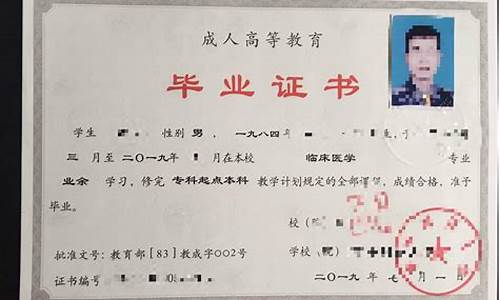 成人高等教育
毕业证书
学生 性别 男， 一九八四年
三 月至二〇一九年 月在本校 临床医学 专业
业余 学习，修完 专科起点本科 教学计划规定的全部课程，成绩合格，准予
毕业。
校（院）
批准文号：教育部［83］教成字002号 学校（院）
证书编号 二〇一九 年 七 月 一 日